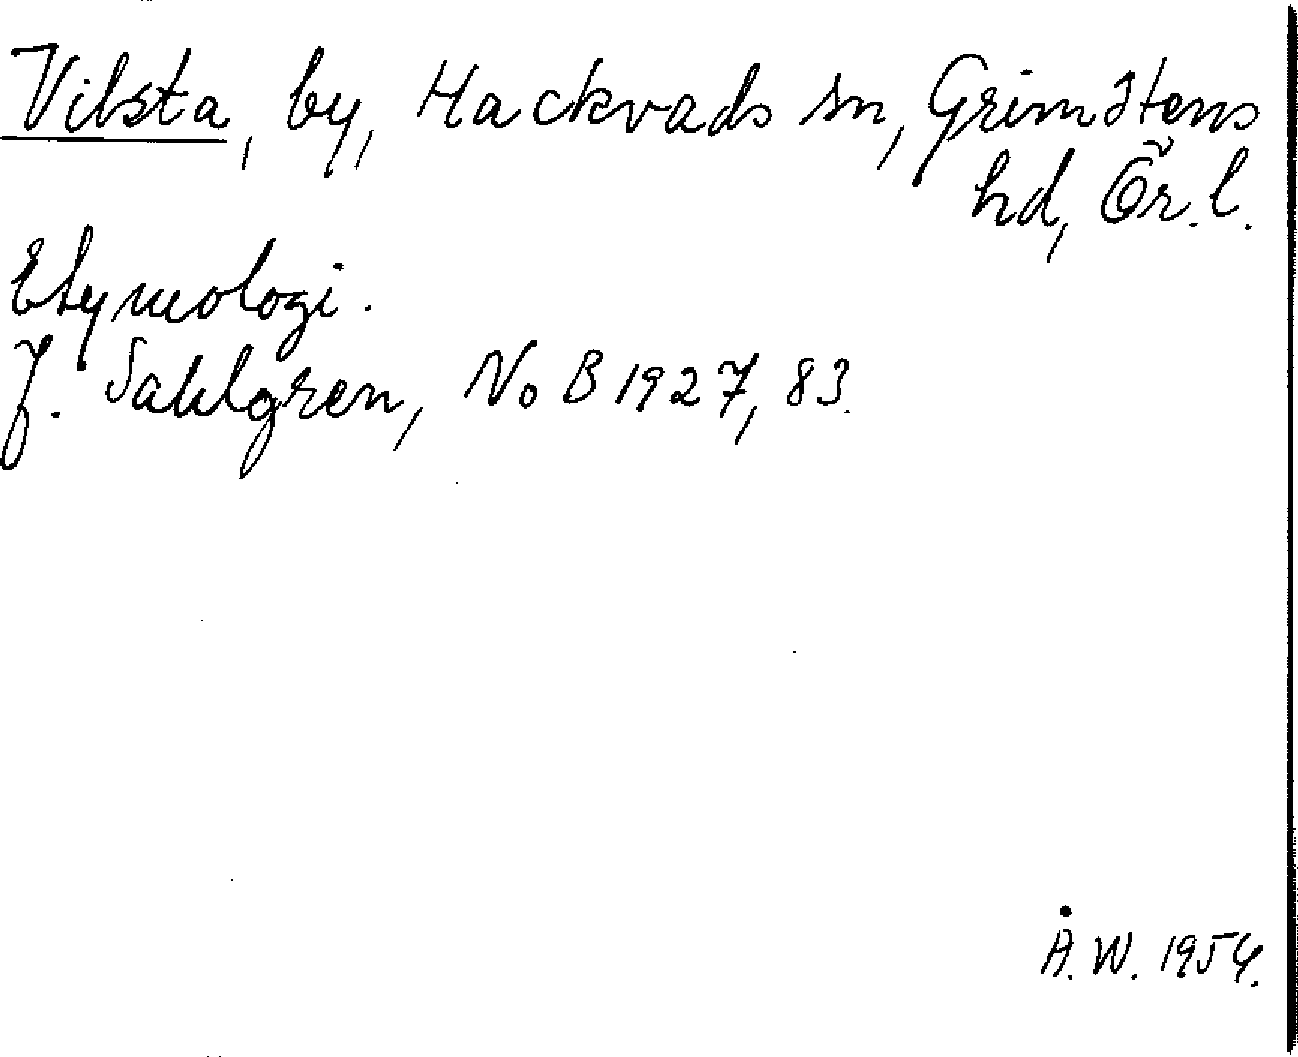 Vibsta, by, Hackvads sn, Grimstens
hd, Ör. l.
Etymologi.
J. Sahlgren, NoB 1927, 83.
Å. W. 1954.